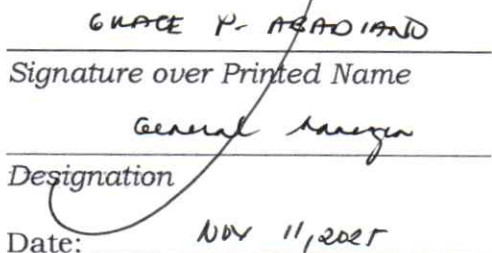 GRACE P. ABADIANO
Signature over Printed Name
General Manager
Designation
Date: Nov 11, 2025